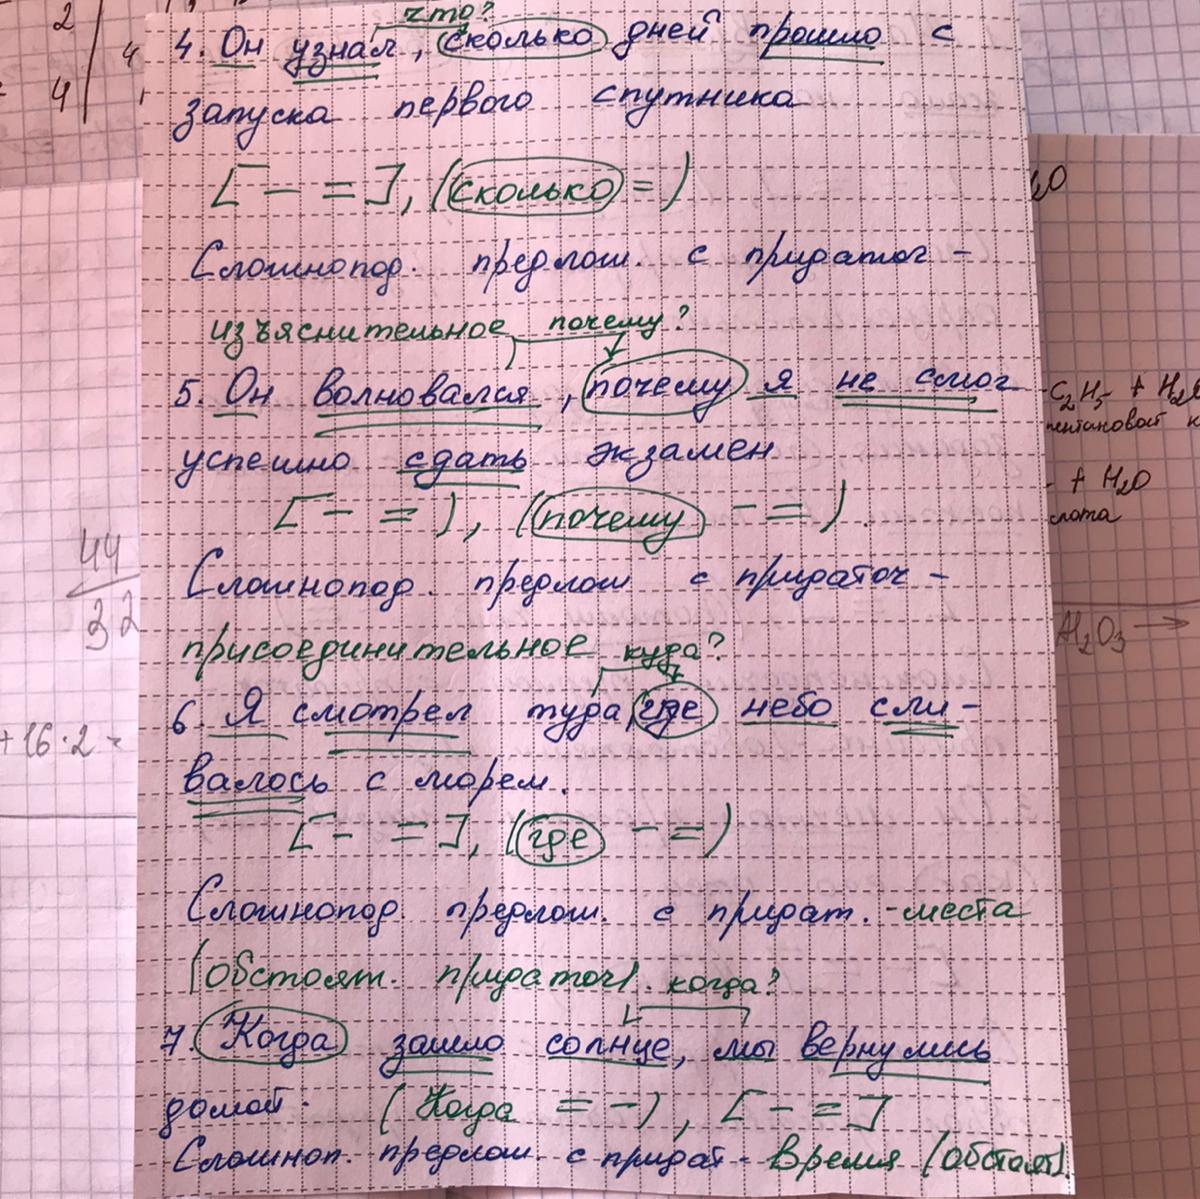 2
4
4
что?
4. Он узнал, сколько дней прошло с
запуска первого спутника
[— =], (сколько =)
Сложнопод. предлож. с придаточ -
изъяснительное почему?
5. Он волновался, почему я не смог
успешно сдать экзамен
[— =), (почему — =).
Сложнопод. предлож с придаточ -
присоединительное куда?
6. Я смотрел туда, где небо сли-
валось с морем.
[— =], (где — =)
Сложнопод предлож. с придат. - места
(обстоят. придаточ). когда?
7. Когда зашло солнце, мы вернулись
домой. (Когда = —), [— =]
Сложноп. предлож. с придат - время (обстоят).
44
32
+ 16 · 2
C₂H₅ + H₂O
+ H₂O
Al₂O₃ →